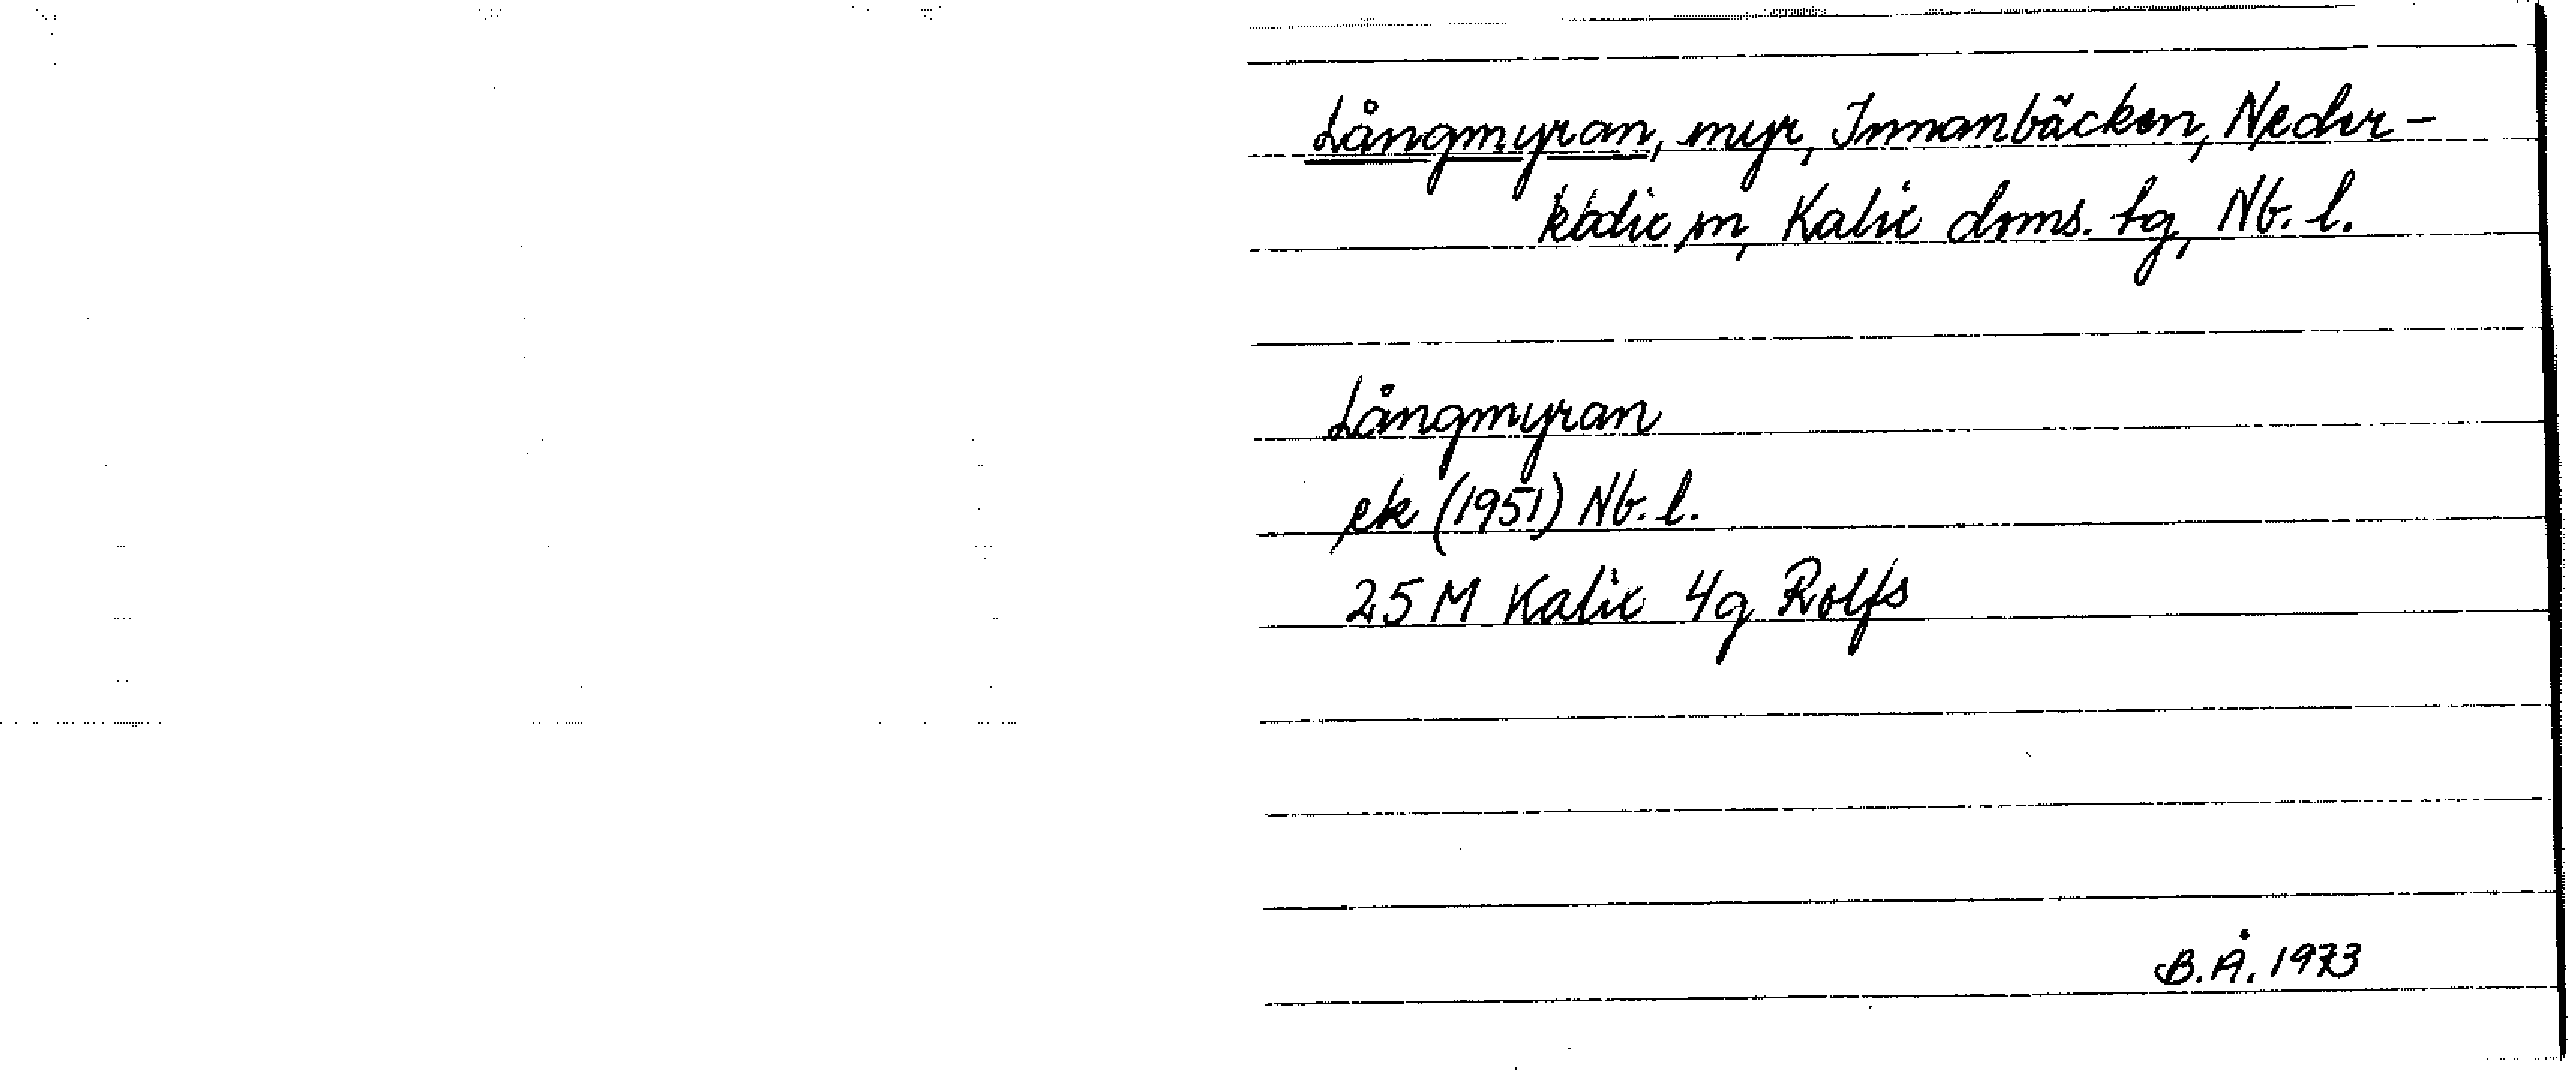 Långmyran, myr, Innanbäcken, Neder-
kalix sn, Kalix doms. tg, Nb. l.
Långmyran
ek (1951) Nb. l.
25 M Kalix 4g Rolfs
B.Å. 1973